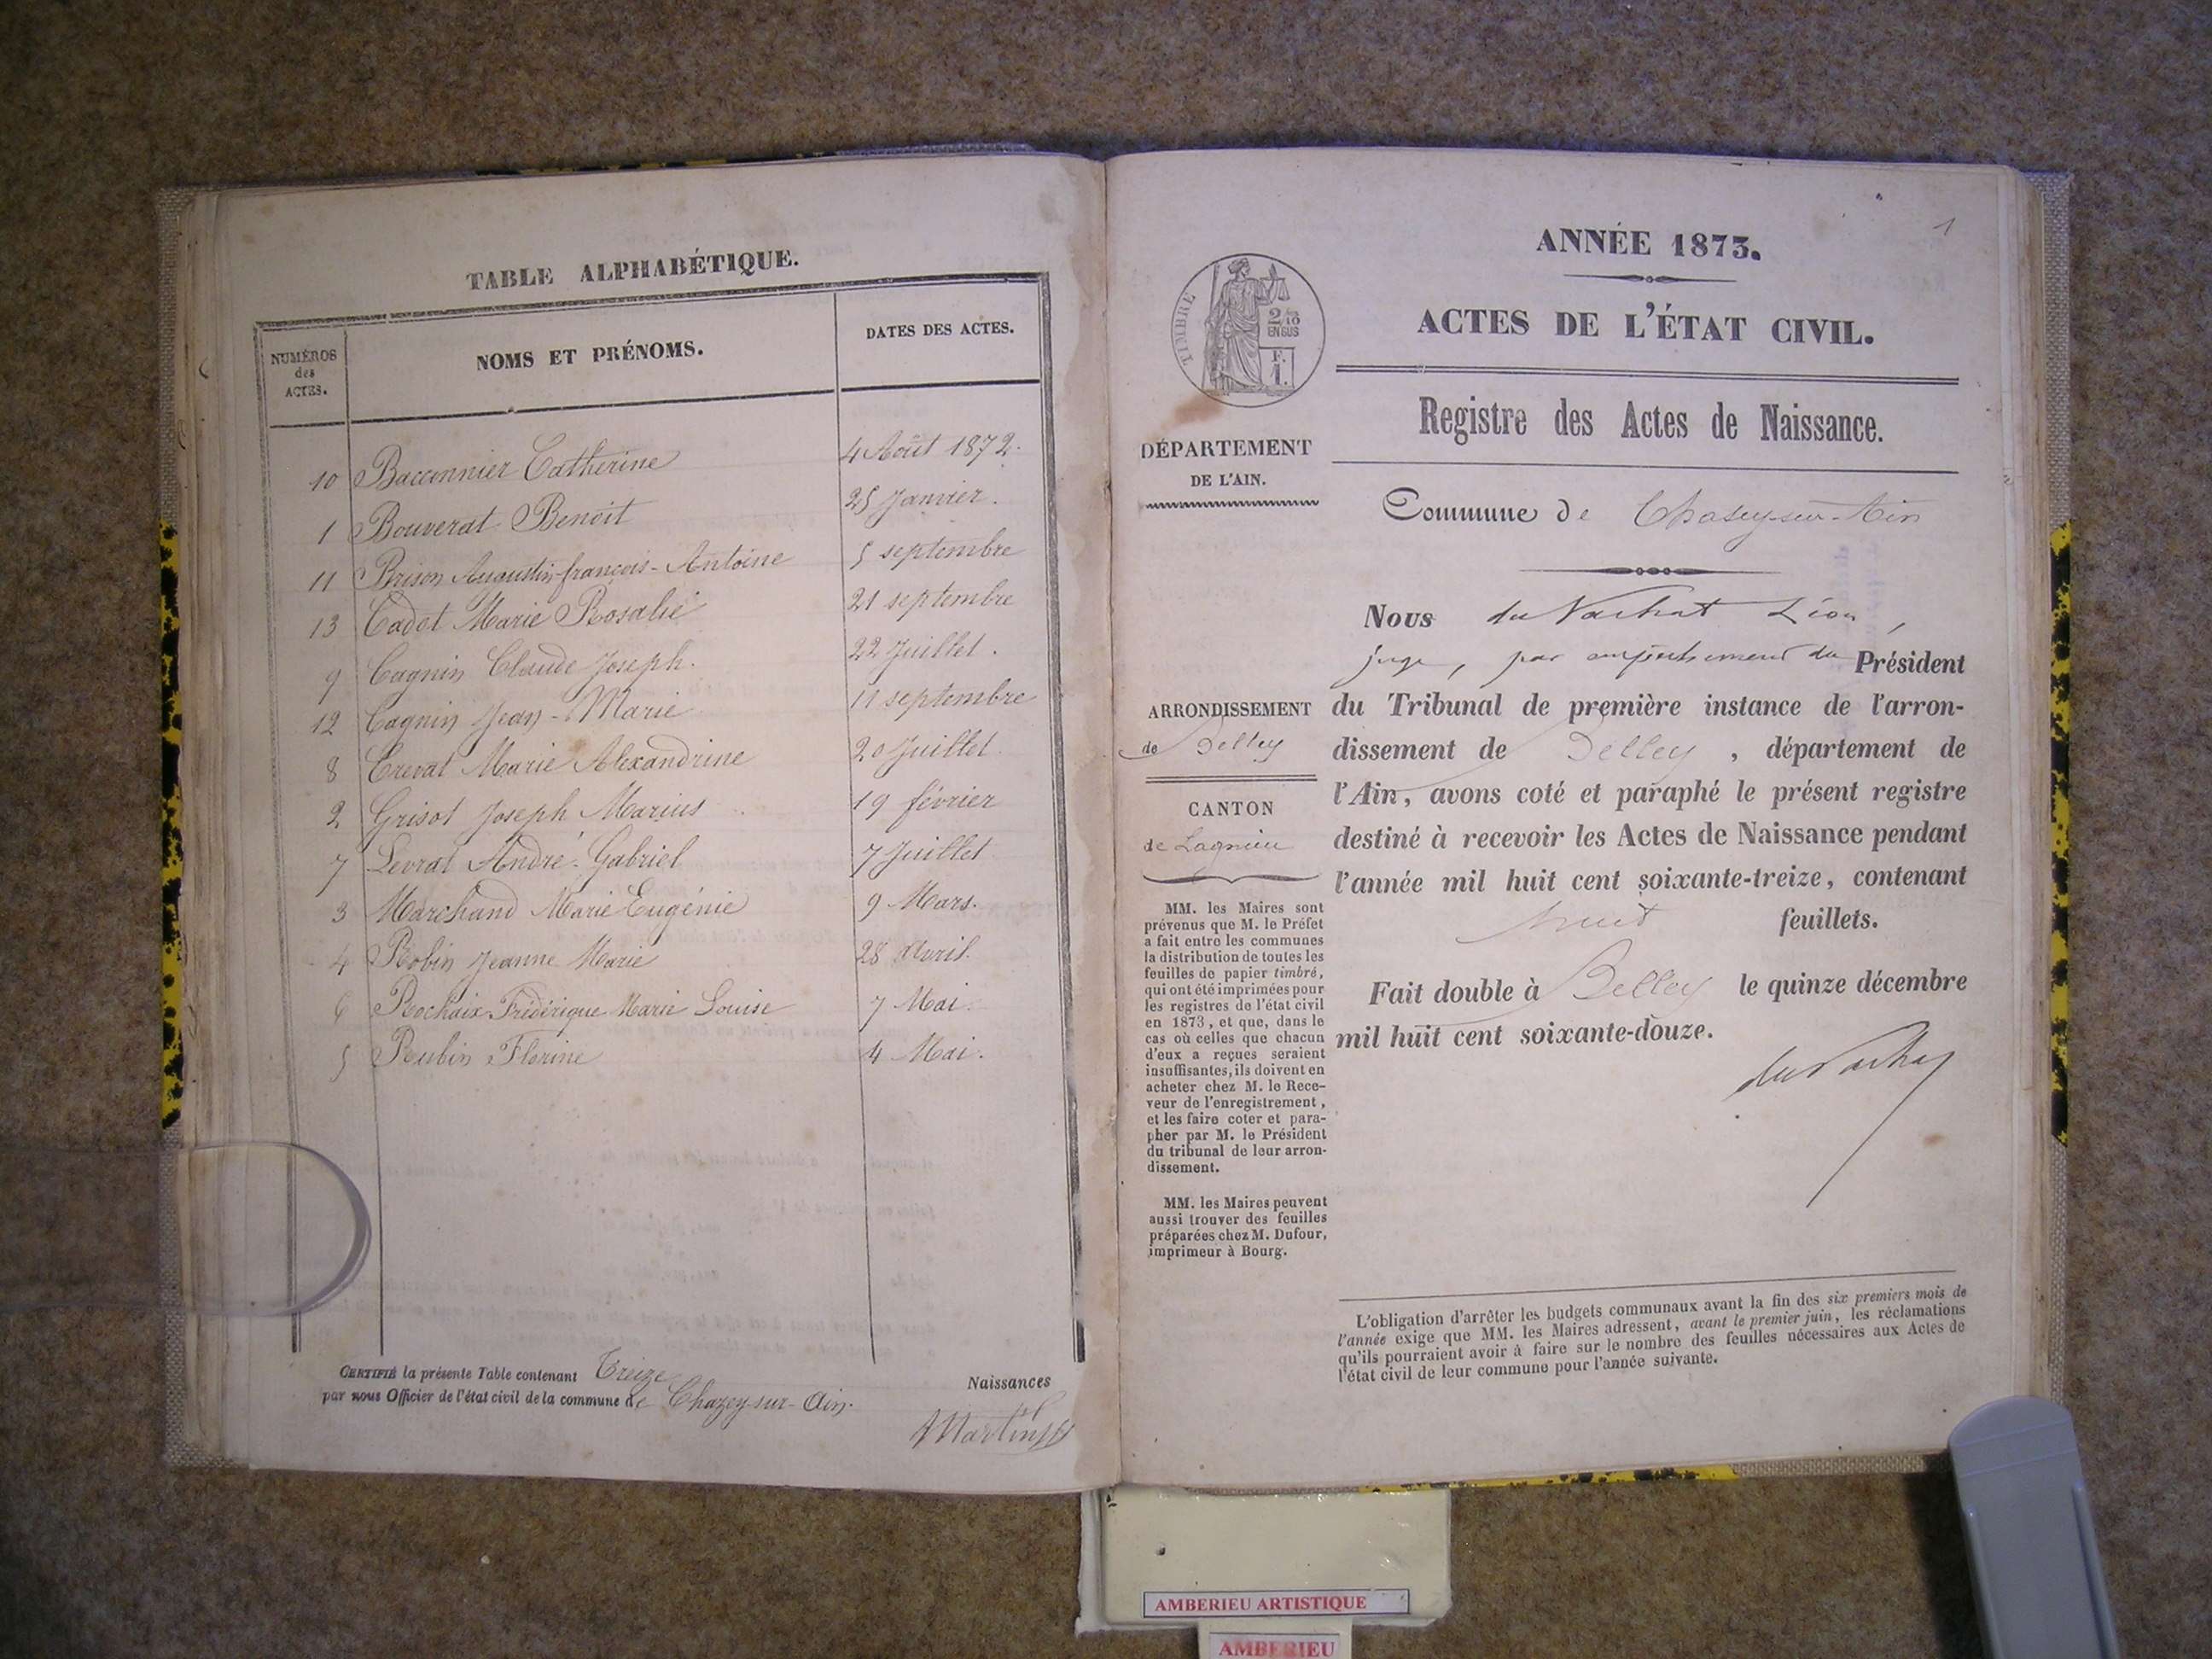 TABLE ALPHABÉTIQUE.
NUMÉROS
des
ACTES.
NOMS ET PRÉNOMS.
DATES DES ACTES.
10 Baconnier Catherine 4 Août 1872.
1 Bouverat Benoit 25 Janvier.
11 Brison Augustin-françois-Antoine 5 septembre
13 Cadot Marie Rosalie 21 septembre
9 Cagnin Claude Joseph. 22 Juillet.
12 Cagnin Jean-Marie 11 septembre
8 Crevat Marie Alexandrine 20 Juillet.
2 Grisot Joseph Marius 19 février
7 Levrat André-Gabriel 7 Juillet
3 Marchand Marie Eugénie 9 Mars.
4 Robin Jeanne Marie 28 Avril.
6 Rochaix Frédérique Marie Louise 7 Mai.
5 Rubin Florine 4 Mai.
CERTIFIÉ la présente Table contenant Treize Naissances
par nous Officier de l'état civil de la commune de Chazey-sur-Ain.
Martin
1
ANNÉE 1873.
ACTES DE L'ÉTAT CIVIL.
Registre des Actes de Naissance.
TIMBRE
2/10
EN SUS
F.
1.
DÉPARTEMENT
DE L'AIN.
Commune de Chazey-sur-Ain
Nous du Vachat Léon,
juge, par empêchement du Président
du Tribunal de première instance de l'arron-
dissement de Belley, département de
l'Ain, avons coté et paraphé le présent registre
destiné à recevoir les Actes de Naissance pendant
l'année mil huit cent soixante-treize, contenant
huit feuillets.
Fait double à Belley le quinze décembre
mil huit cent soixante-douze.
du Vachat
ARRONDISSEMENT
de Belley
CANTON
de Lagnieu
MM. les Maires sont
prévenus que M. le Préfet
a fait entre les communes
la distribution de toutes les
feuilles de papier timbré,
qui ont été imprimées pour
les registres de l'état civil
en 1873, et que, dans le
cas où celles que chacun
d'eux a reçues seraient
insuffisantes, ils doivent en
acheter chez M. le Rece-
veur de l'enregistrement,
et les faire coter et para-
pher par M. le Président
du tribunal de leur arron-
dissement.
MM. les Maires peuvent
aussi trouver des feuilles
préparées chez M. Dufour,
imprimeur à Bourg.
L'obligation d'arrêter les budgets communaux avant la fin des six premiers mois de
l'année exige que MM. les Maires adressent, avant le premier juin, les réclamations
qu'ils pourraient avoir à faire sur le nombre des feuilles nécessaires aux Actes de
l'état civil de leur commune pour l'année suivante.
AMBERIEU ARTISTIQUE
AMBERIEU